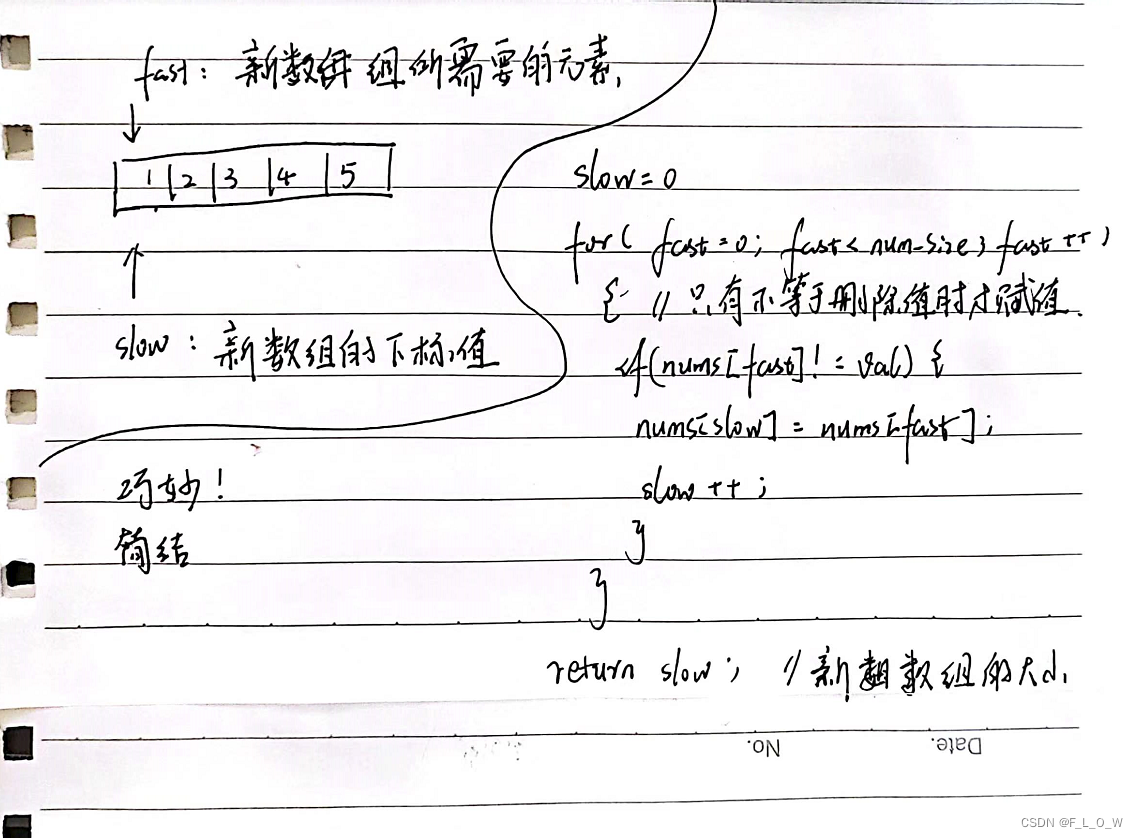 fast: 新数组所需要的元素
1 2 3 4 5
slow: 新数组的下标值
巧妙!
简结
slow=0
for( fast=0; fast<num-size; fast++)
{ // 只有不等于删除值时才赋值.
if(nums[fast]!=val) {
nums[slow] = nums[fast];
slow++;
}
}
return slow; // 新数组的大小
Date.
No.
CSDN @F_L_O_W